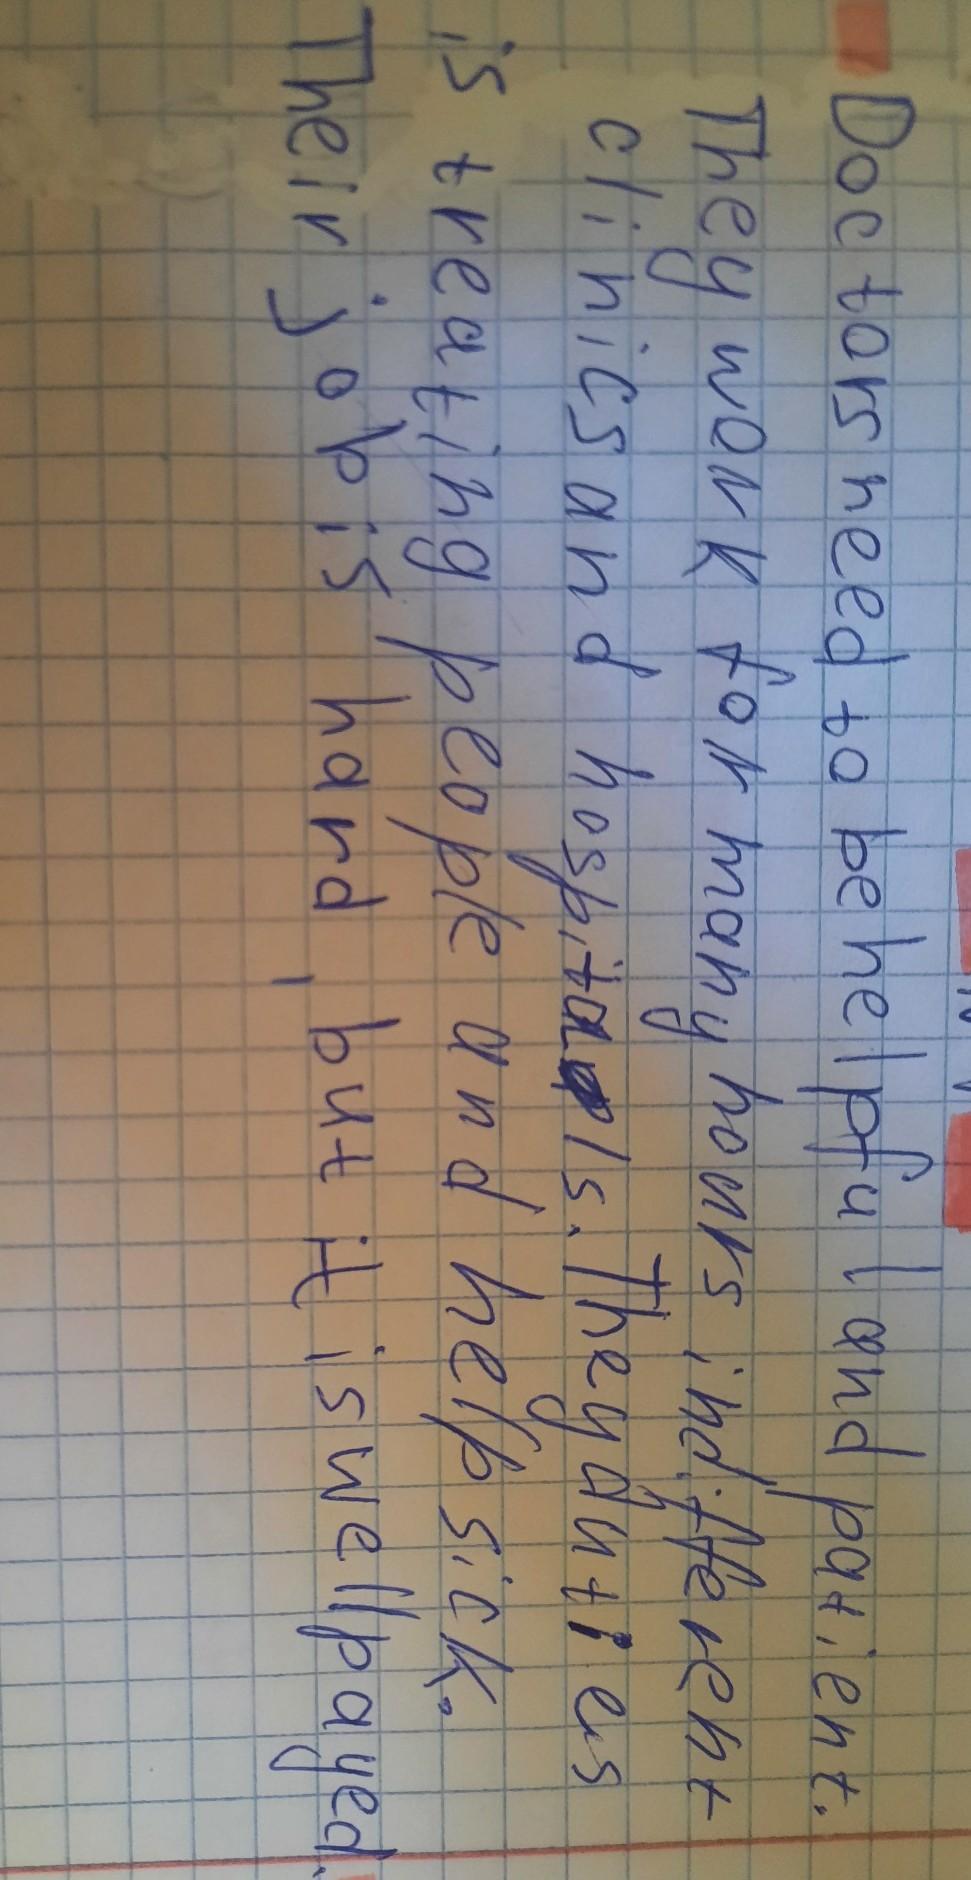 Doctors need to be helpful and patient.
They work for many hours in different
clinics and hospitals. They duties
is treating people and help sick.
Their job is hard, but it is well payed.